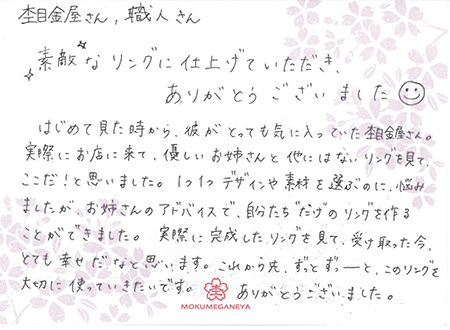 杢目金屋さん，職人さん
素敵なリングに仕上げていただき、
ありがとうございました
はじめて見た時から、彼がとっても気に入っていた杢目金屋さん。
実際にお店に来て、優しいお姉さんと他にはないリングを見て、
ここだ！と思いました。1つ1つデザインや素材を選ぶのに、悩み
ましたが、お姉さんのアドバイスで、自分たちだけのリングを作る
ことができました。実際に完成したリングを見て、受け取った今、
とても幸せだなと思います。これから先、ずっとずーっと、このリングを
大切に使っていきたいです。 ありがとうございました。
MOKUMEGANEYA